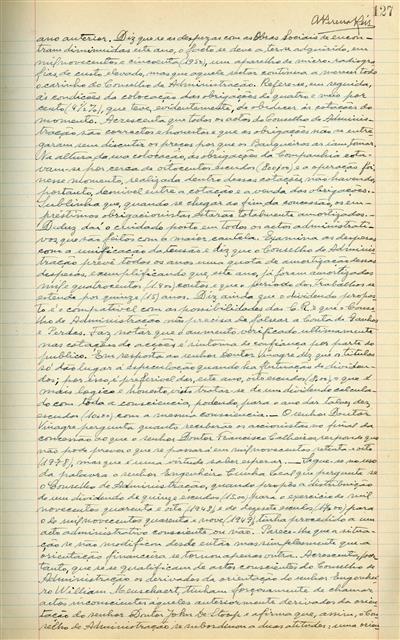 127
ano anterior. Diz que se as despezas com as Obras Sociais se encon-
tram diminuidas este ano, o facto se deve a ter-se adquirido, em
mil novecentos e cincoenta (1950), um aparelho de micro-radiogra-
fias de custo elevado, mas que aquela secção continua a merecer todo
o carinho do Conselho de Administração. Refere-se, em seguida,
ás condições da colocação das obrigações de quatro e meio por
cento (4½%), que teve, evidentemente, de obedecer ás cotações do
momento. Acrescenta que todos os actos do Conselho de Adminis-
tração são correctos e honestos e que as obrigações não se entre-
garam sem discutir os preços por que os Banqueiros as iam tomar.
Na altura da sua colocação, as obrigações da Companhia cota-
vam-se por cerca de oitocentos escudos (800$00) e a operação foi,
nesse momento, realizada dentro dessas cotações, não havendo,
portanto, desnivel entre a cotação e a venda das obrigações.
Sublinha que, quando se chegar ao fim da concessão, os em-
préstimos obrigacionistas estarão totalmente amortizados.
Deduz daí o cuidado posto em todos os actos administrati-
vos que são feitos com a maior cautela. Examina as despesas
com a unificação da tensão e diz que o Conselho de Adminis-
tração prevê todos os anos uma quota de amortização dessas
despesas, exemplificando que, este ano, já foram amortizados
mil e quatrocentos (1.400) contos e que o periodo dos trabalhos se
estende por quinze (15) anos. Diz ainda que o dividendo propos-
to é comparativel com as possibilidades da C.R.G.E. que o Conse-
lho de Administração não precisa de falsear a Conta de Ganhos
e Perdas. Faz notar que o aumento verificado ultimamente
nas cotações de acções é sintoma de confiança por parte do
publico. Em resposta ao senhor Doutor Vinagre diz que os titulos
só dão lugar á especulação quando ha flutuação de dividen-
dos; por isso, é preferivel dar, este ano, oito escudos (8$00), o que é
mais logico e honesto, visto tratar-se de um dividendo calcula-
do com toda a consciencia, podendo para o ano dar talvez dez
escudos (10$00), com a mesma consciencia. — O senhor Doutor
Vinagre pergunta quanto receberão os accionistas no final da
concessão ao que o senhor Doutor Francisco Calheiros responde que
não pode prever o que se passará em mil novecentos setenta e oito
(1978), mas que é uma virtude saber esperar. — Segue-se no uso
da palavra o senhor Engenheiro Cunha Leal que pergunta se
o Conselho de Administração, quando propôs a distribuição
de um dividendo de quinze escudos (15$00) para o exercicio de mil
novecentos quarenta e oito (1948), e de dezasete escudos (17$00) para
o de mil novecentos quarenta e nove (1949), tinha procedido a um
acto administrativo consciente ou não. Parece-lhe que a situa-
ção se não modificou desde então mas, simplesmente que a
orientação financeira se tornou apenas outra. Acrescenta, por-
tanto, que se se qualificam de actos conscientes do Conselho de
Administração os derivados da orientação do senhor Engenhei-
ro William Meuschaert, tinham forçosamente de chamar
actos inconscientes aqueles anteriormente derivados da orien-
tação do senhor Doutor John de Stoop e afirma que, assim, o Con-
selho de Administração se subordinou a duas atitudes: uma orien-